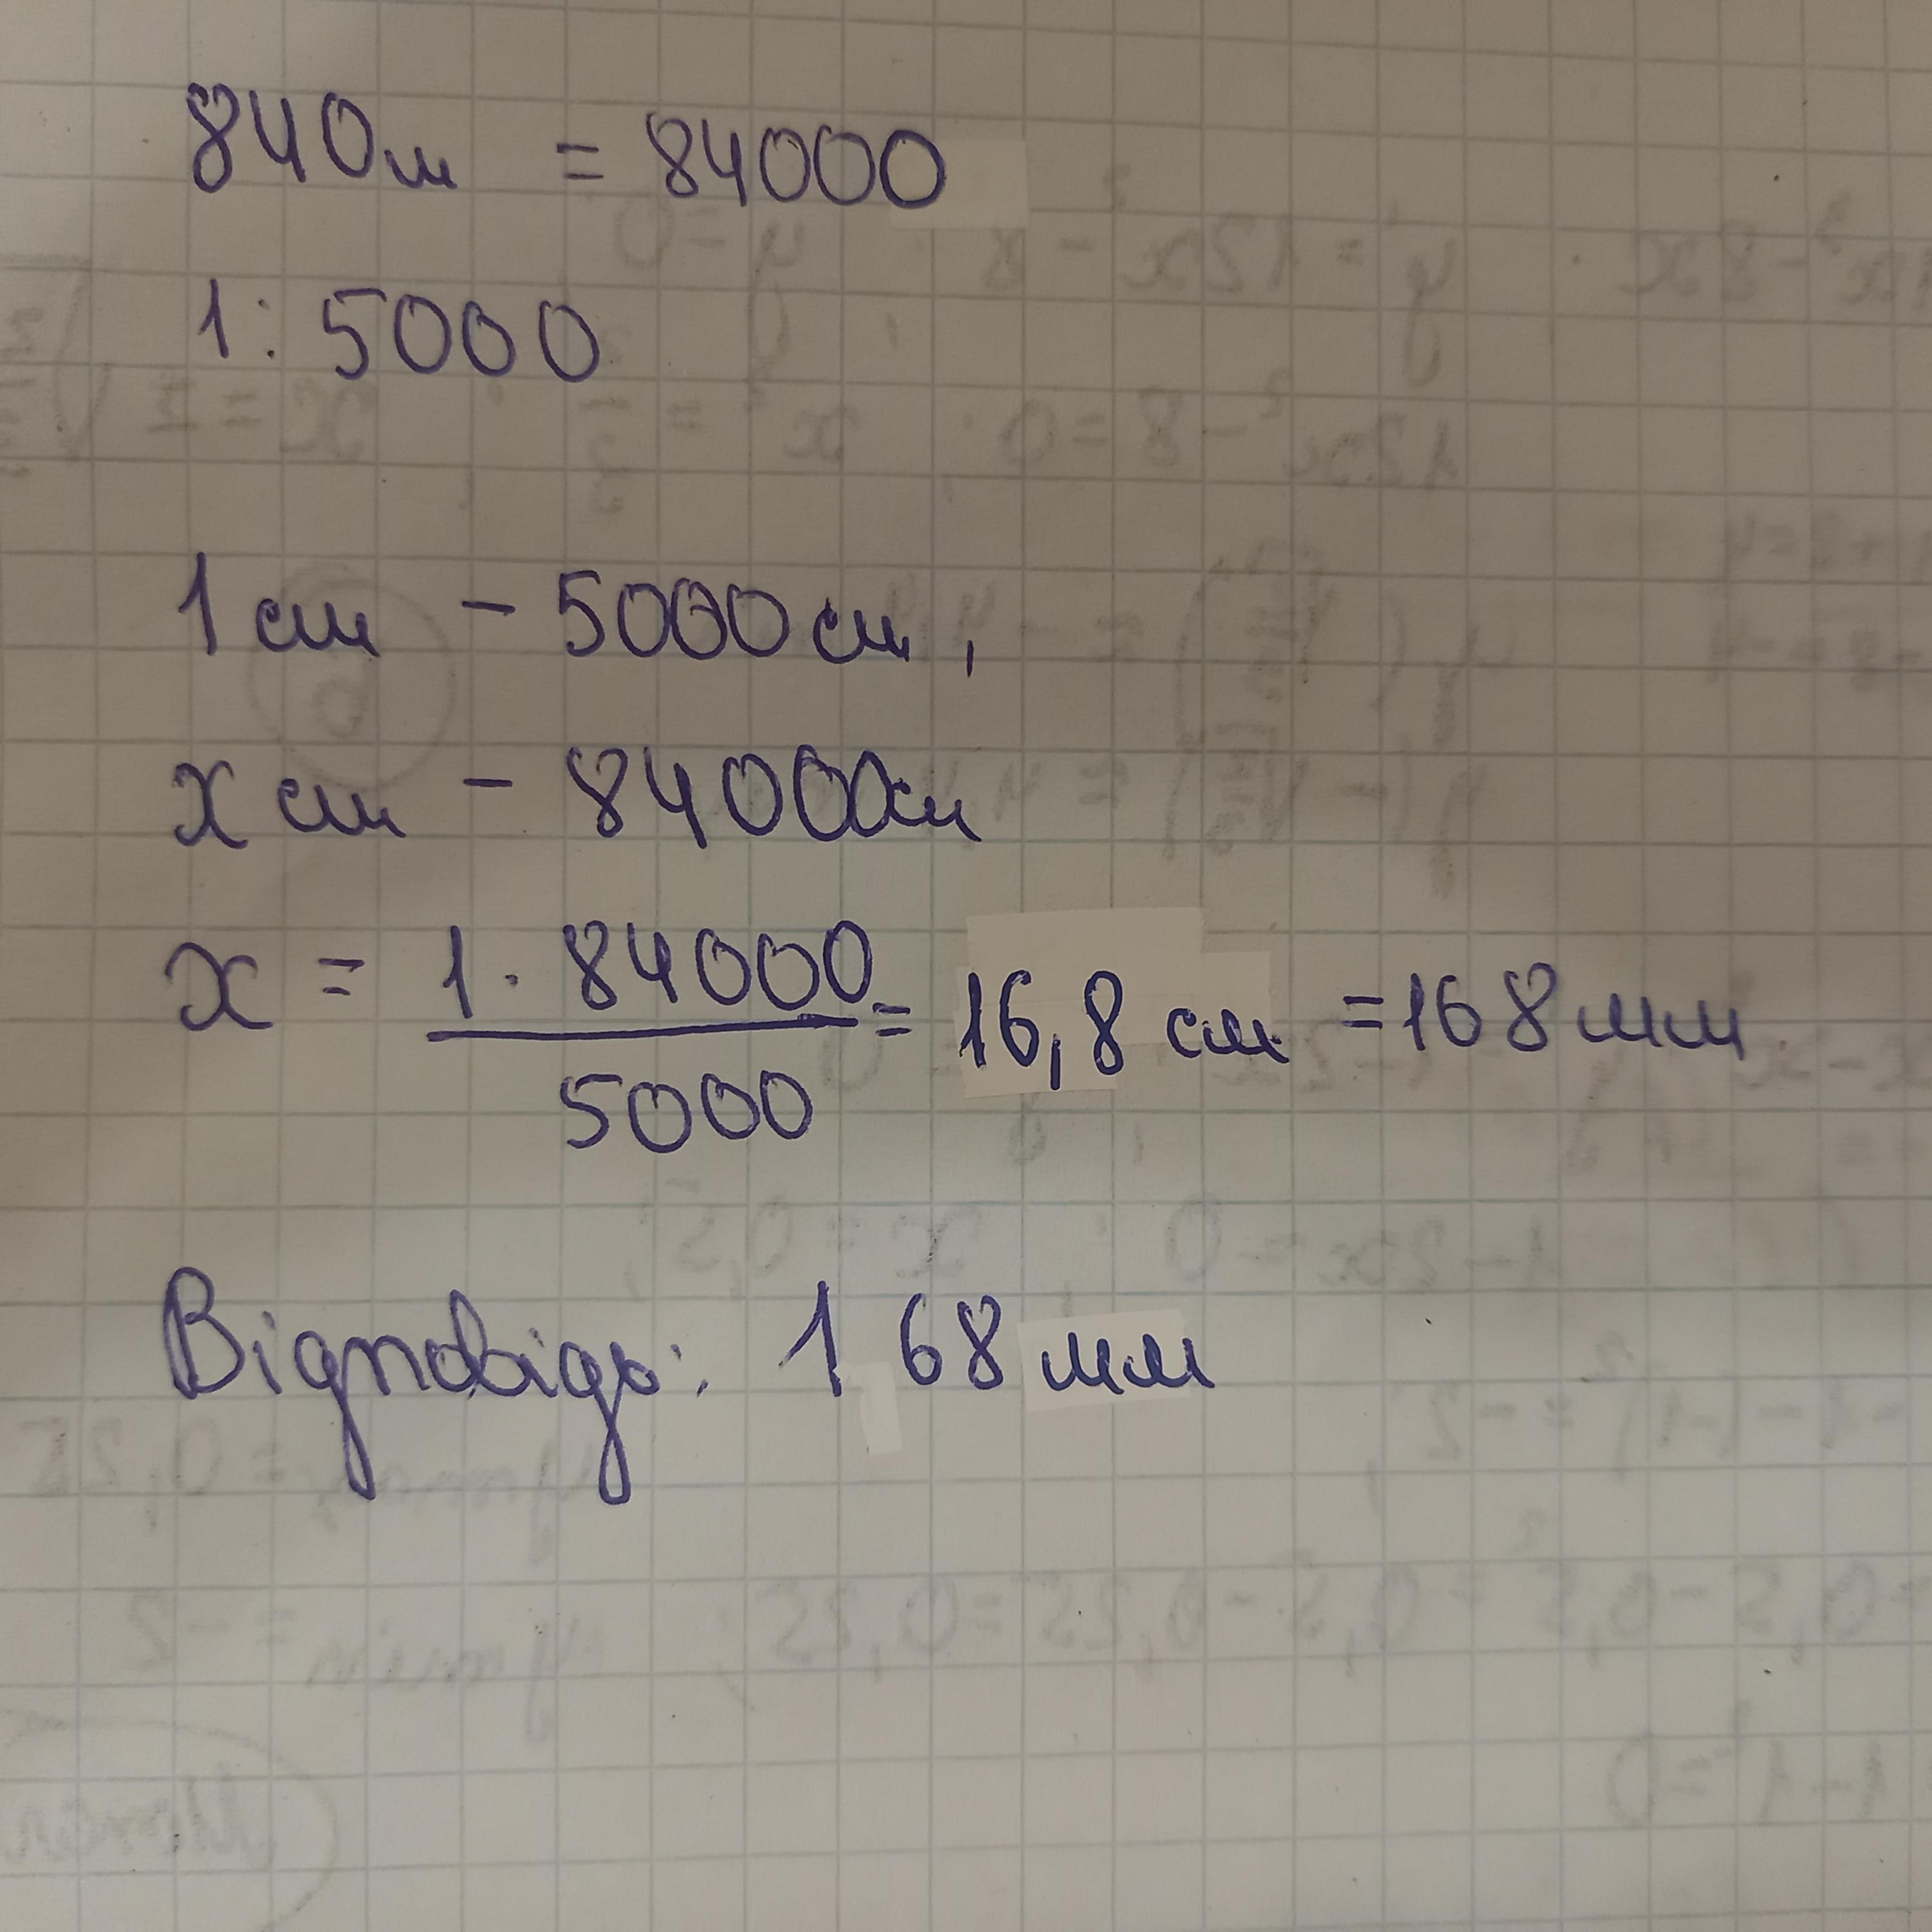 840м = 84000
1:5000
1 см - 5000 см,
x см - 84000см
x = 1 · 84000 / 5000 = 16,8 см = 168 мм
Відповідь: 168 мм